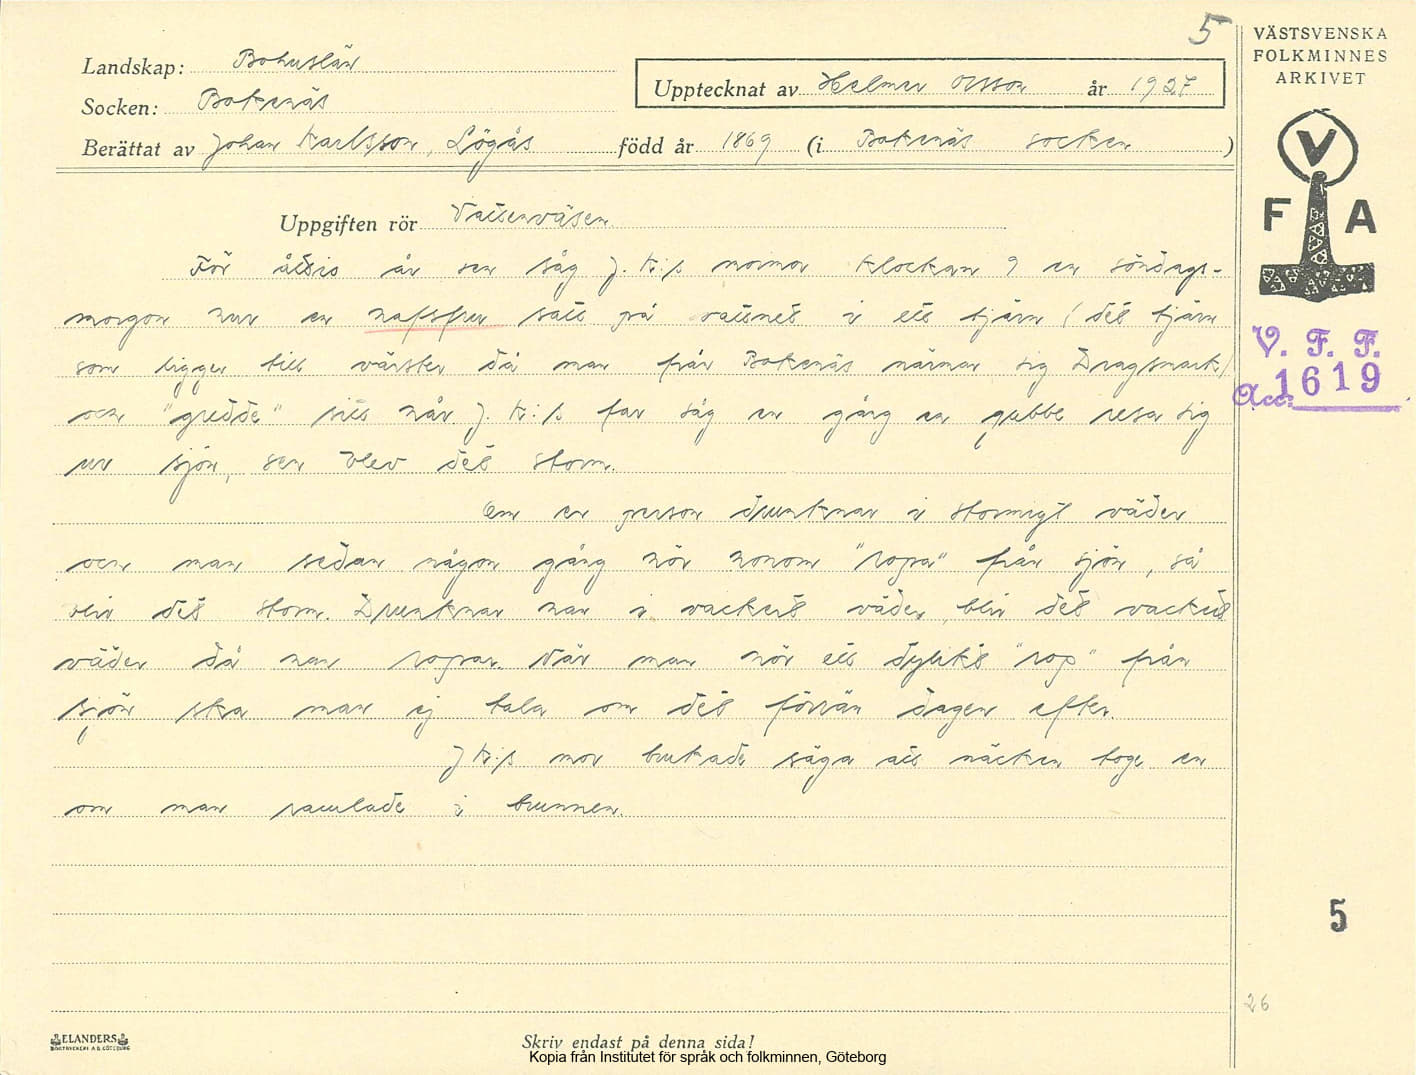 5
VÄSTSVENSKA
FOLKMINNES
ARKIVET
Landskap: Bohuslän
Upptecknat av Helmer Olsson år 1927
Socken: Bokenäs
Berättat av Johan Karlsson, Lögås född år 1869 (i Bokenäs socken )
V
F A
Uppgiften rör Vattenväsen.
För åttio år sen såg J. K:s mormor klockan 9 en söndags-
morgon hur en hafsfru satt på vattnet i ett tjärn (det tjärn
som ligger till vänster då man från Bokenäs närmar sig Dragsmark)
och "gredde" sitt hår. J. K:s far såg en gång en gubbe resa sig
ur sjön, sen blev det storm.
Om en person drunknar i stormigt väder
och man sedan någon gång hör honom "ropa" från sjön, så
blir det storm. Drunknar han i vackert väder, blir det vackert
väder då han ropar. När man hör ett dylikt "rop" från
sjön ska man ej tala om det förrän dagen efter.
J K:s mor brukade säga att näcken toge en
om man ramlade i brunnen.
V. F. F.
Acc: 1619
5
26
ELANDERS
BOKTRYCKERI A.B. GÖTEBORG
Skriv endast på denna sida!
Kopia från Institutet för språk och folkminnen, Göteborg